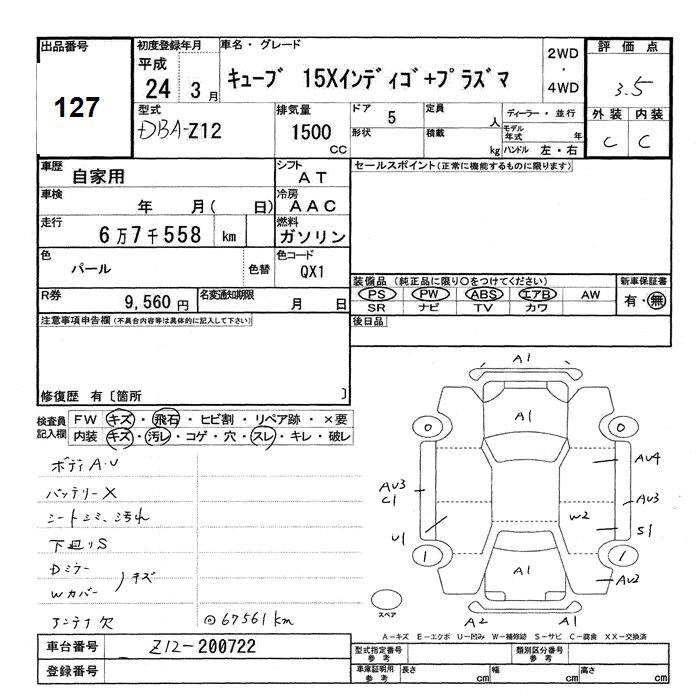 出品番号
127
初度登録年月
平成
24 3月
車名・グレード
キューブ 15Xインディゴ+プラズマ
2WD
・
4WD
評価点
3.5
外装 内装
C C
型式
DBA-Z12
排気量
1500
CC
ドア 5
形状
定員 人
積載 kg
ディーラー・並行
モデル年式 年
ハンドル 左・右
車歴
自家用
シフト
AT
車検
年 月( 日)
冷房
AAC
走行
6万7千558 km
燃料
ガソリン
色
パール
色替
色コード
QX1
R券
9,560円
名変通知期限
月 日
セールスポイント(正常に機能するものに限ります)
装備品(純正品に限り○をつけてください)
PS PW ABS エアB AW
SR ナビ TV カワ
新車保証書
有・無
後日品
注意事項申告欄(不具合内容等は具体的に記入して下さい)
修復歴 有〔箇所 〕
検査員記入欄
FW キズ・飛石・ヒビ割・リペア跡・×要
内装 キズ・汚レ・コゲ・穴・スレ・キレ・破レ
ボディA・U
バッテリーX
シートシミ、汚れ
下廻りS
Dミラー
Wカバー
キズ
アンテナ欠
◎67561km
A1
A1
0 0
AU4
AU3
C1
AU3
W2
S1
U1
1 1
A1
AU2
スペア
A2 A1
A―キズ E―エクボ U―凹み W―補修跡 S―サビ C―腐食 XX―交換済
車台番号
Z12-200722
登録番号
型式指定番号
参考
類別区分番号
参考
車庫証明用
参考
長さ cm 幅 cm 高さ cm